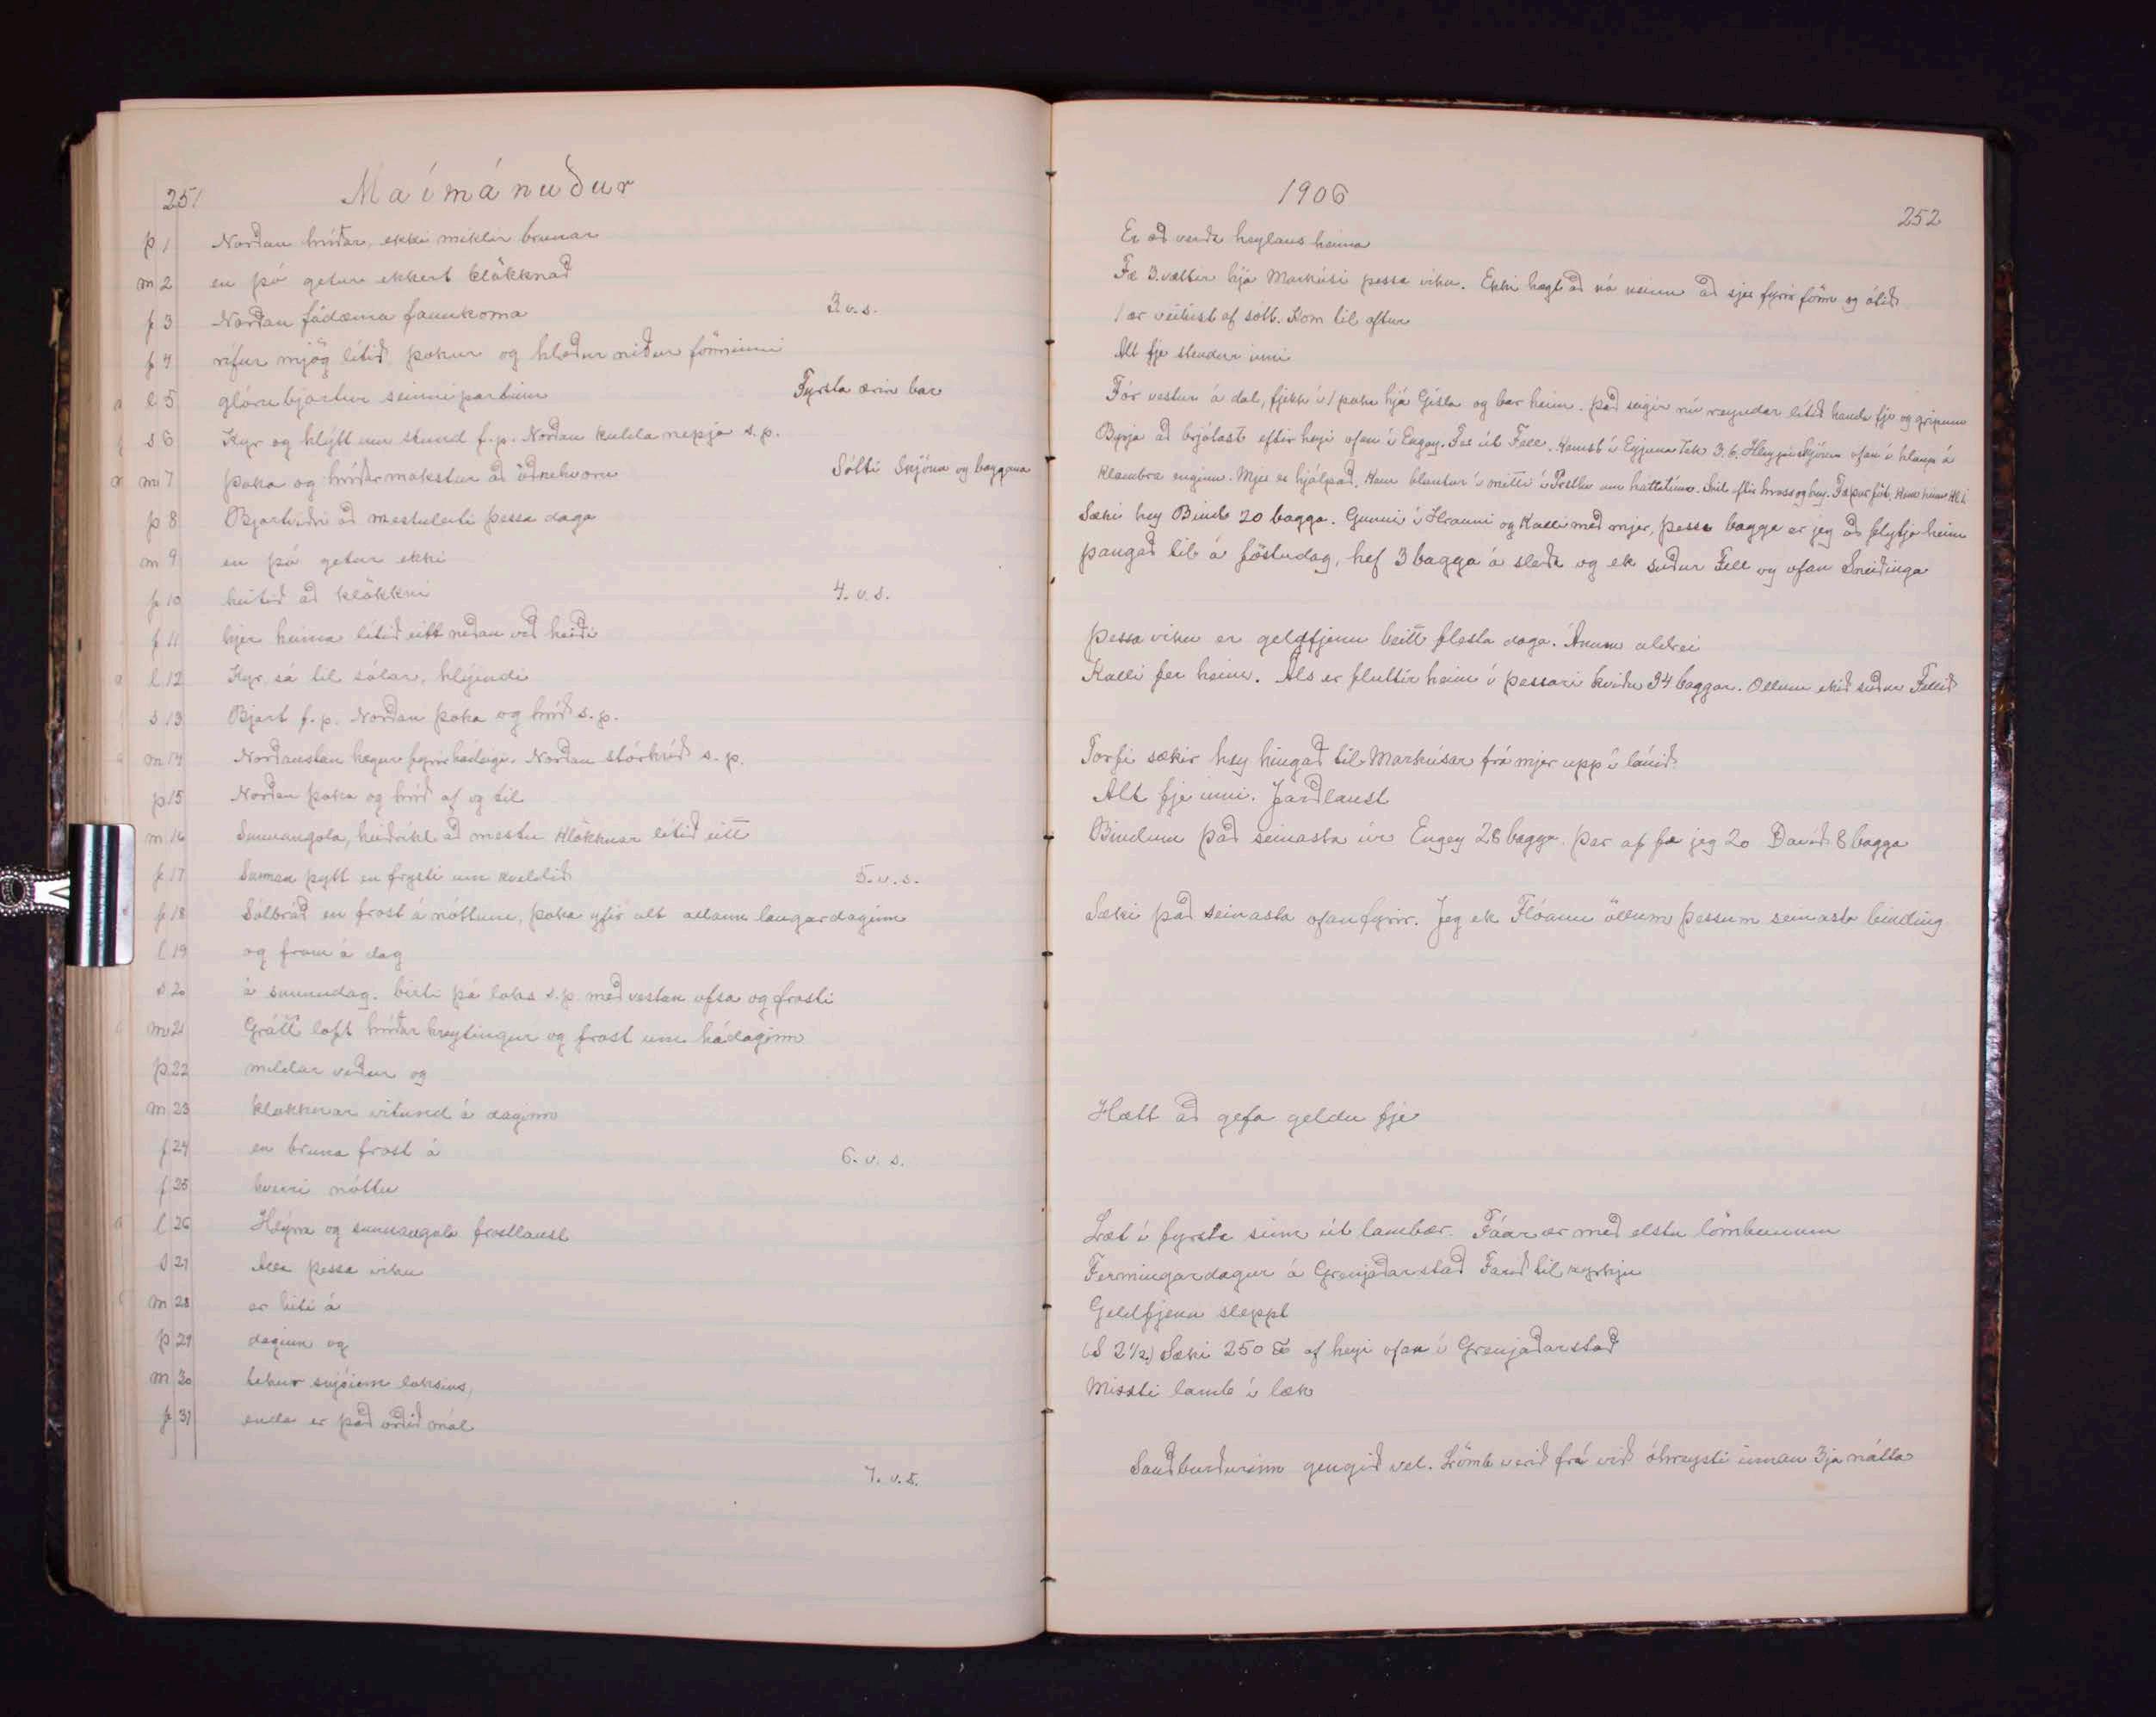 251
Maímánuður
þ 1 Norðan hríðar, ekki miklir brunar
m 2 en þó getur ekkert klökknað
f 3 Norðan fádæma fannkoma 3. v. s.
f 4 rífur mjög lítið þokur og hleður niður fönninni
l 5 glóru bjartur seinnipartinn Fyrsta ærin bar
s 6 Kyr og hlýtt um stund f.p. Norðan kulda nepja s.p.
m 7 Þoka og hríðarmokstur að öðruhvoru Sótti Skjónu og baggana
þ 8 Bjartviðri að mestuleiti þessa daga
m 9 en þó getur ekki
f 10 heitið að klökkni 4. v. s.
f 11 hjer heima lítið eitt neðan við heiði
l 12 Kyr, sá til sólar, hlýindi
s 13 Bjart f.p. Norðan þoka og hríð s.p.
m 14 Norðaustan hægur fyrir hádegi. Norðan stórhríð s.p.
þ 15 Norðan þoka og hríð af og til
m 16 Sunnangola, heiðríkt að mestu klökknar lítið eitt
f 17 Sunnan þýtt en frysti um kveldið 5. v. s.
f 18 Sólbráð en frost á nóttum, þoka yfir alt allann laugardaginn
l 19 og fram á dag
s 20 á sunnudag. birti þá loks s.p. með vestan ofsa og frosti
m 21 Grátt loft hríðar hreytingur og frost um hádaginn
þ 22 mildar veður og
m 23 klökknar vitund á daginn
f 24 en bruna frost á 6. v. s.
f 25 hverri nóttu
l 26 Hlýrra og sunnangola frostlaust
s 27 Alla þessa viku
m 28 er hiti á
þ 29 daginn og
m 30 tekur snjóinn loksins,
f 31 enda er það orðið mál
7. v. s.
1906
252
Er að verða heylaus heima
Fæ 3. vættir hjá Markúsi þessa viku. Ekki hægt að ná neinu að sjer fyrir fönn og ótíð
1 ær veiktist af sótt. Kom til aftur
Alt fje stendur inni
Fór vestur á dal, fjekk í 1 poka hjá Gísla og bar heim. Það seigir nú reyndar lítið handa fje og gripum
Byrja að brjótast eftir heyi ofan í Engey. Fæ út Fell. Komst í Eyjuna Tek 3. b. Hleypi Skjónu ofan í hlaup á
Klambra enginn. Mjer er hjálpað. Kem blautur í mitti í Presthv um háttatíma. Skil eftir hross og hey. Fæ þur föt, kem heim kl 1
Sæki hey Bind 20 bagga. Gunni í Hrauni og Kalli með mjer, þessa bagga er jeg að flytja heim
þangað til á föstudag, hef 3 bagga á sleða og ek suður Fell og ofan Sneiðinga
Þessa viku er geldfjenu beitt flesta daga. Ánum aldrei
Kalli fer heim. Als er fluttir heim í þessari hviðu 34 baggar. Öllum ekið suður Fellið
Torfi sækir hey hingað til Markúsar frá mjer upp í lánið
Alt fje inni. Jarðlaust
Bindum það seinasta úr Engey 28 bagga. Þar af fæ jeg 20 Davíð 8 bagga
Sæki það seinasta ofanfyrir. Jeg ek Flóann öllum þessum seinasta binding
Hætt að gefa geldu fje
Læt í fyrsta sinn út lambær. Fáar ær með elstu lömbunum
Fermingardagur á Grenjaðarstað Farið til kyrkju
Geldfjenu sleppt
(S 2½) Sæki 250 ℔ af heyi ofan í Grenjaðarstað
Missti lamb í læk
Sauðburðurinn gengið vel. Lömb verið frá við óhreysti innan 3ja nátta